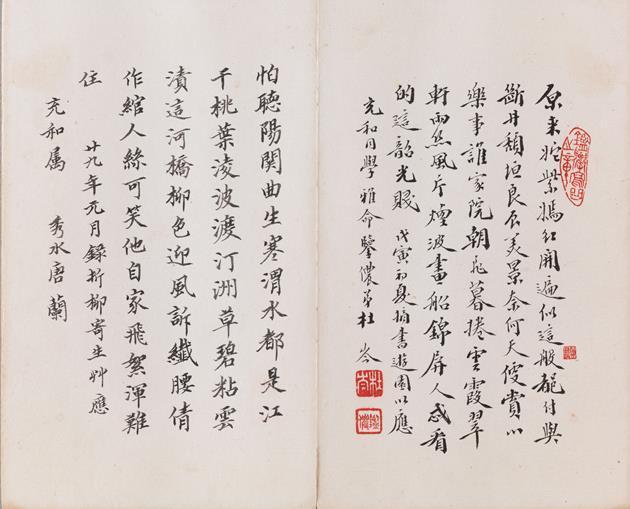 原来姹紫嫣红開遍似這般都付與
斷井頹垣良辰美景奈何天便賞心
樂事誰家院朝飛暮捲雲霞翠
軒雨絲風片煙波畫船錦屏人忒看
的這韶光賤 戊寅初夏摘書遊園以應
充和同學雅命 鑒儂弟杜岑
杜岑
怕聽陽關曲生寒渭水都是江
干桃葉凌波渡汀洲草碧粘雲
漬這河橋柳色迎風訴纖腰倩
作綰人絲可笑他自家飛絮渾難
住 廿九年元月錄折柳寄生艸應
充和属 秀水唐蘭